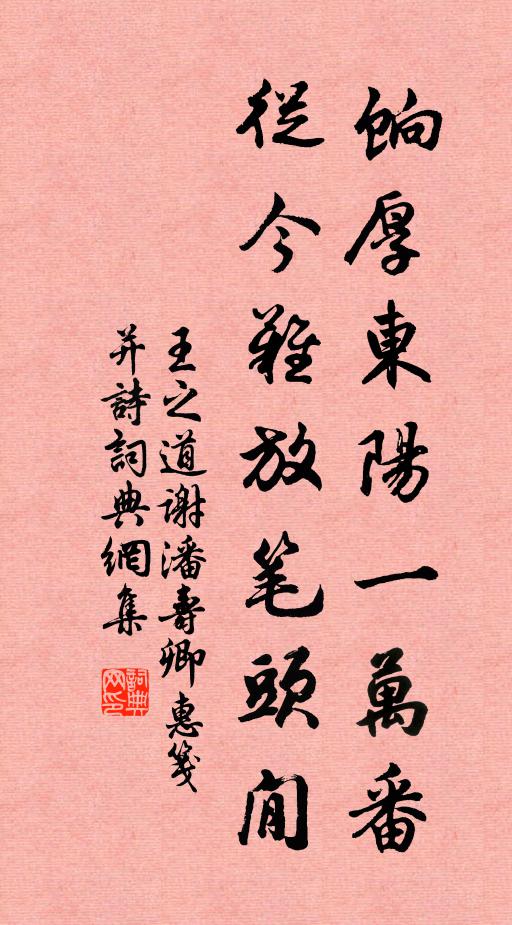 餉厚東陽一萬番
從今難放笔頭閒
王之道谢潘壽卿惠箋
并詩詞典網集
詞典网印